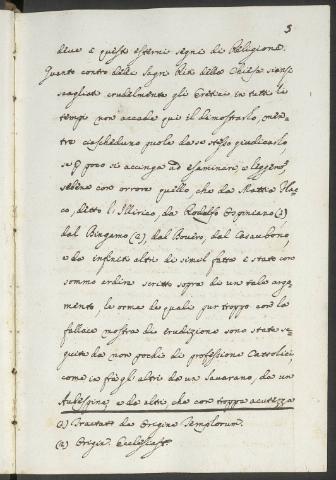 3
deve e questi esterni segni di Religione.
Quanto contro delli Sagri Riti della Chiesa siensi
scagliati crudelmente gli Eretici in tutti li
tempi non accade qui il dimostrarlo, men-
tre ciascheduno puole da se stesso giudicarlo
se p poco si accinga ad esaminare, e leggere,
sebene con orrore quello che da Mattia Flac-
co, detto l'Illirico, da Rodolfo Ospiniano (1)
dal Bingamo (2), dal Bouero, dal Casaubono,
e da infiniti altri di simil fatta è stato con
sommo ardire scritto sopra di un tale argo-
mento, le orme de quali pur troppo con la
fallace mostra di erudizione sono state se-
guite da non pochi di professione Cattolici,
come in frà gli altri da un Savarano, da un
Aubespine, e da altri che con troppa acutezza
(1) Tractat. de Origine Templorum.
(2) Origin. Ecclesiast.